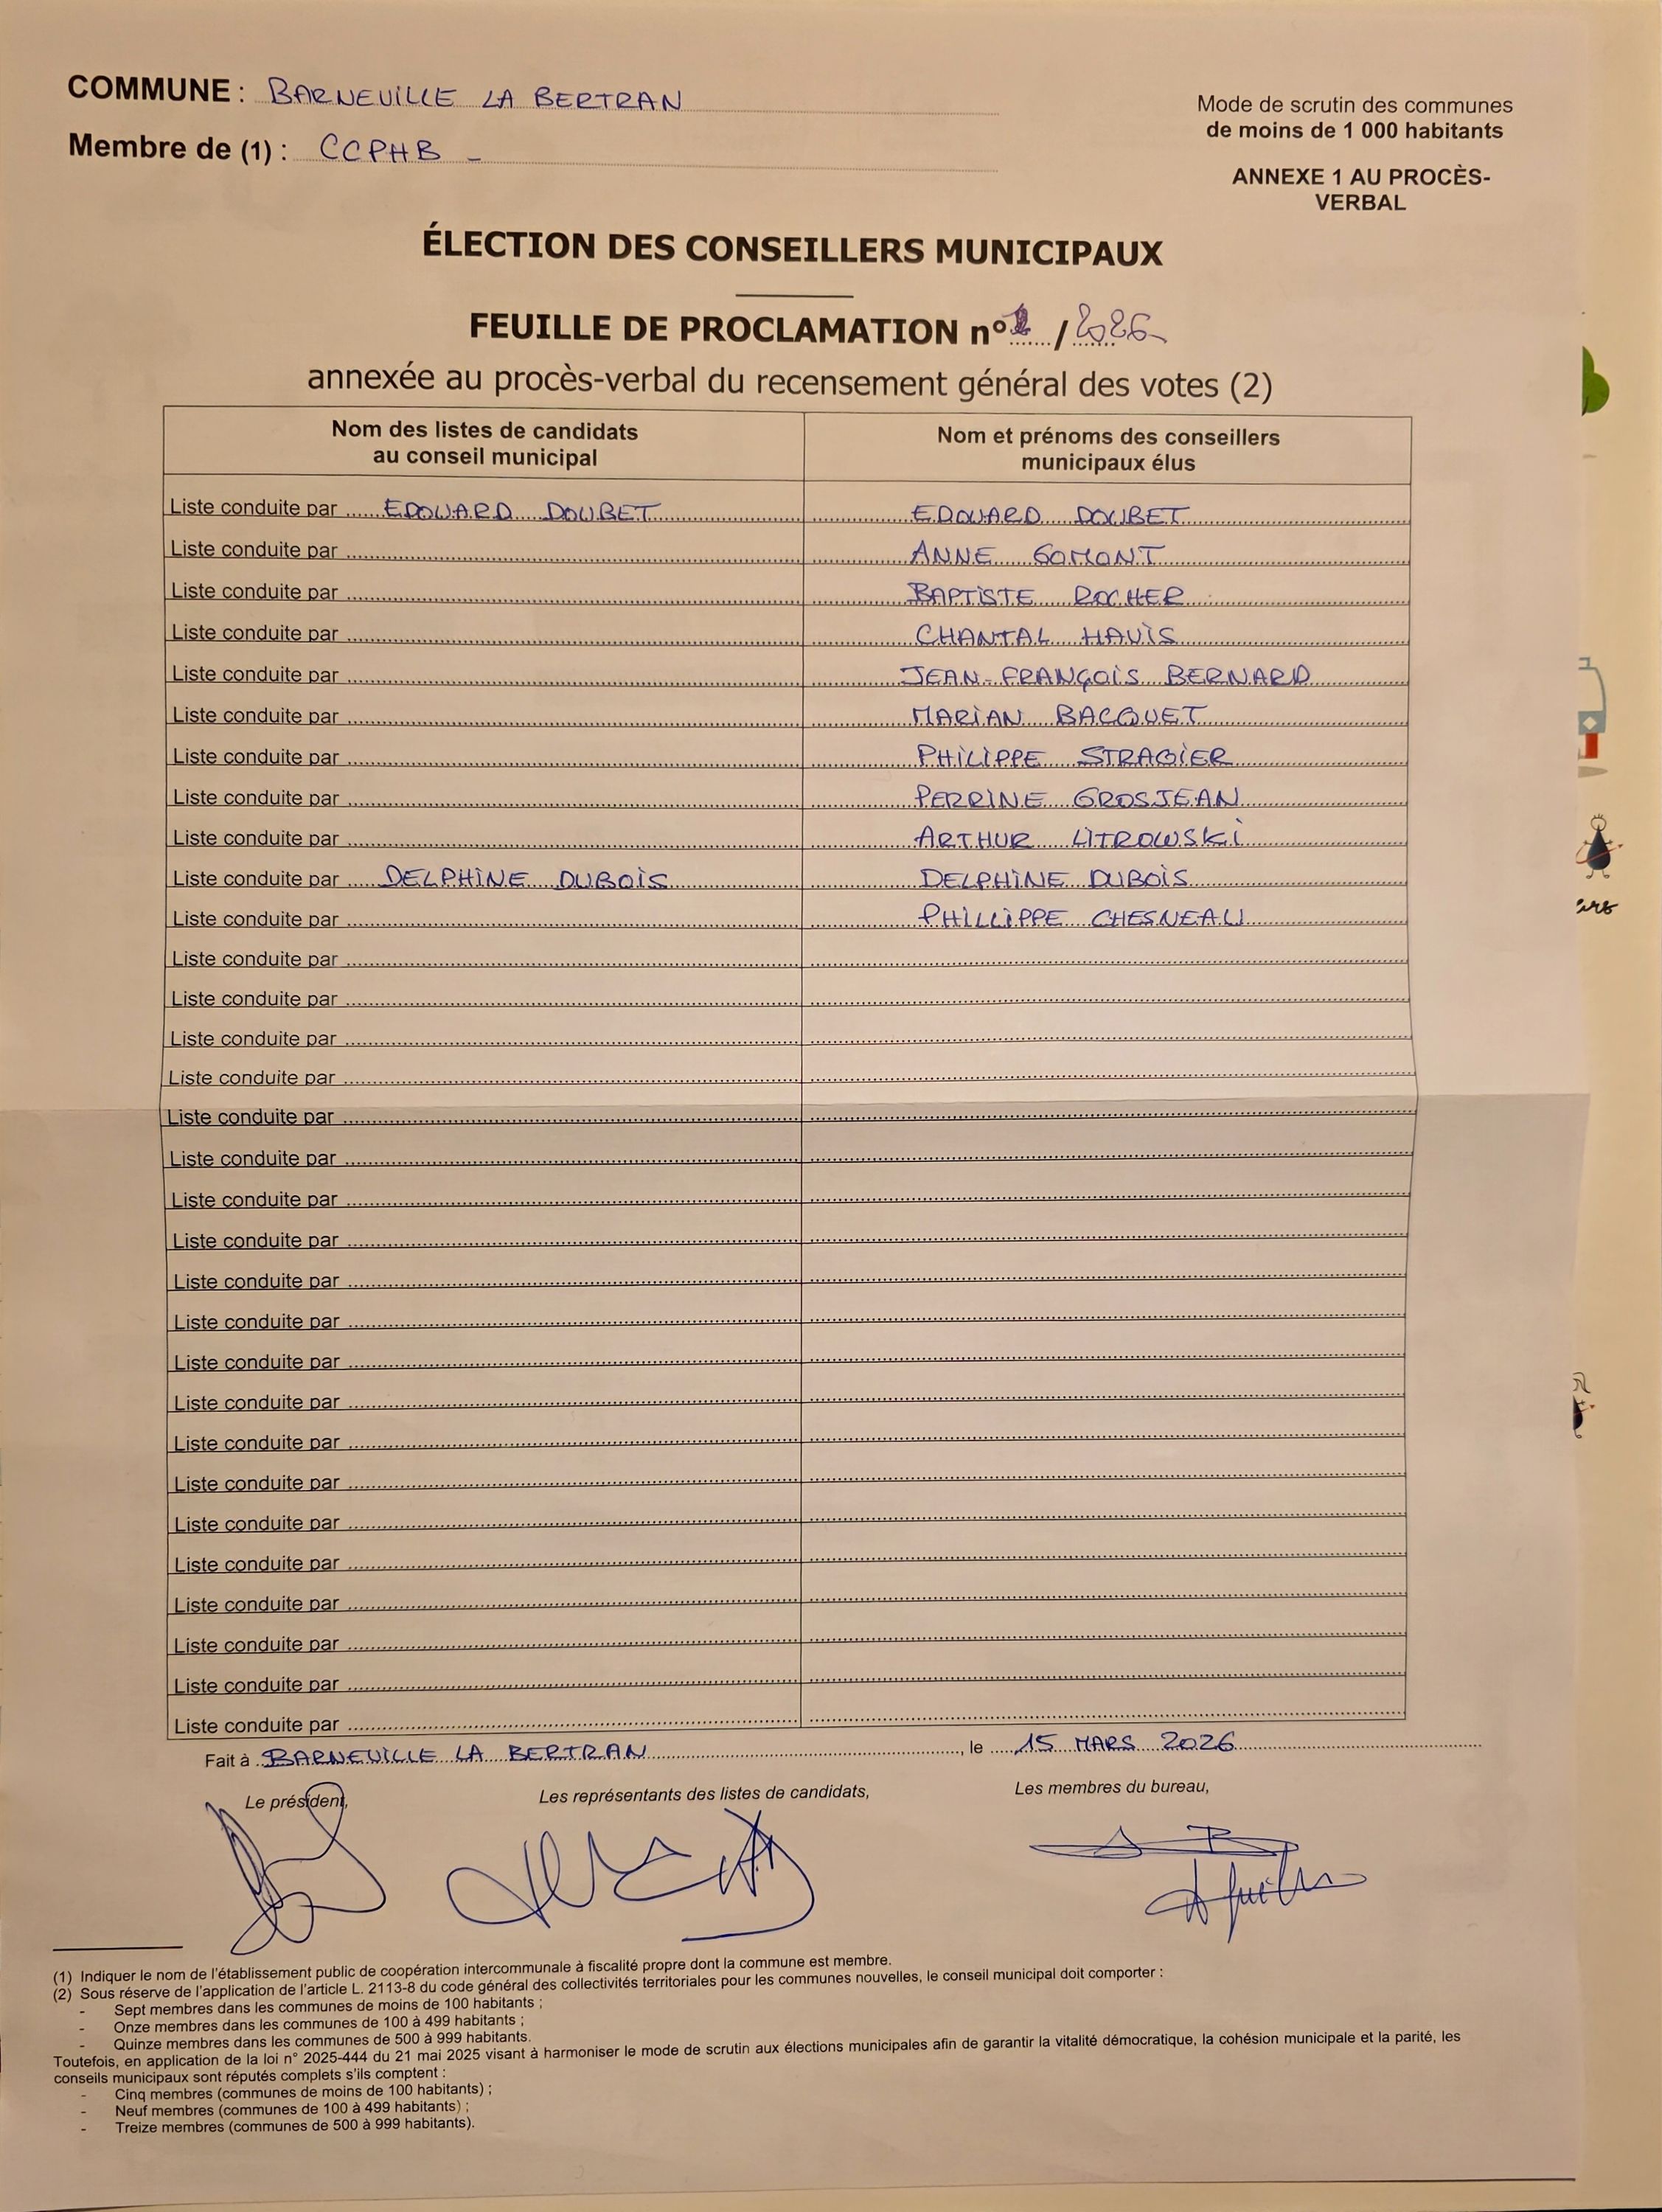 COMMUNE : BARNEVILLE LA BERTRAN
Membre de (1) : CCPHB -
Mode de scrutin des communes
de moins de 1 000 habitants
ANNEXE 1 AU PROCÈS-
VERBAL
ÉLECTION DES CONSEILLERS MUNICIPAUX
FEUILLE DE PROCLAMATION n° 1 / 2026
annexée au procès-verbal du recensement général des votes (2)
Nom des listes de candidats
au conseil municipal
Nom et prénoms des conseillers
municipaux élus
Liste conduite par EDOUARD DOUBET EDOUARD DOUBET
Liste conduite par ANNE GOMONT
Liste conduite par BAPTISTE ROCHER
Liste conduite par CHANTAL HAVIS
Liste conduite par JEAN-FRANÇOIS BERNARD
Liste conduite par MARIAN BACQUET
Liste conduite par PHILIPPE STRAGIER
Liste conduite par PERRINE GROSJEAN
Liste conduite par ARTHUR LITROWSKI
Liste conduite par DELPHINE DUBOIS DELPHINE DUBOIS
Liste conduite par PHILLIPPE CHESNEAU
Liste conduite par
Liste conduite par
Liste conduite par
Liste conduite par
Liste conduite par
Liste conduite par
Liste conduite par
Liste conduite par
Liste conduite par
Liste conduite par
Liste conduite par
Liste conduite par
Liste conduite par
Liste conduite par
Liste conduite par
Liste conduite par
Liste conduite par
Liste conduite par
Liste conduite par
Liste conduite par
Fait à BARNEVILLE LA BERTRAN, le 15 MARS 2026
Le président,
Les représentants des listes de candidats,
Les membres du bureau,
(1) Indiquer le nom de l'établissement public de coopération intercommunale à fiscalité propre dont la commune est membre.
(2) Sous réserve de l'application de l'article L. 2113-8 du code général des collectivités territoriales pour les communes nouvelles, le conseil municipal doit comporter :
- Sept membres dans les communes de moins de 100 habitants ;
- Onze membres dans les communes de 100 à 499 habitants ;
- Quinze membres dans les communes de 500 à 999 habitants.
Toutefois, en application de la loi n° 2025-444 du 21 mai 2025 visant à harmoniser le mode de scrutin aux élections municipales afin de garantir la vitalité démocratique, la cohésion municipale et la parité, les
conseils municipaux sont réputés complets s'ils comptent :
- Cinq membres (communes de moins de 100 habitants) ;
- Neuf membres (communes de 100 à 499 habitants) ;
- Treize membres (communes de 500 à 999 habitants).